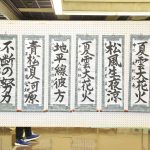 夏雲大花火
松風生夜涼
夏雲大花火
地平線彼方
青松夏河原
不断の努力